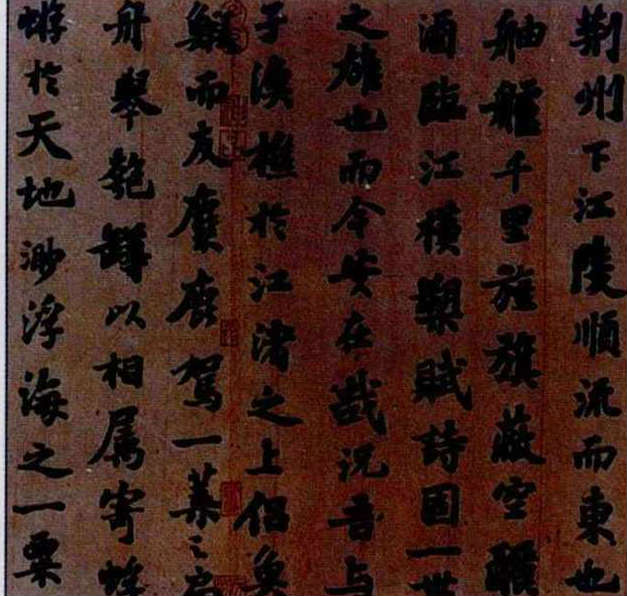 荆州下江陵順流而東也
舳艫千里旌旗蔽空釃
酒臨江橫槊賦詩固一世
之雄也而今安在哉況吾與
子漁樵於江渚之上侶魚
鰕而友麋鹿駕一葉之扁
舟舉匏罇以相属寄蜉
蝣於天地渺浮海之一粟